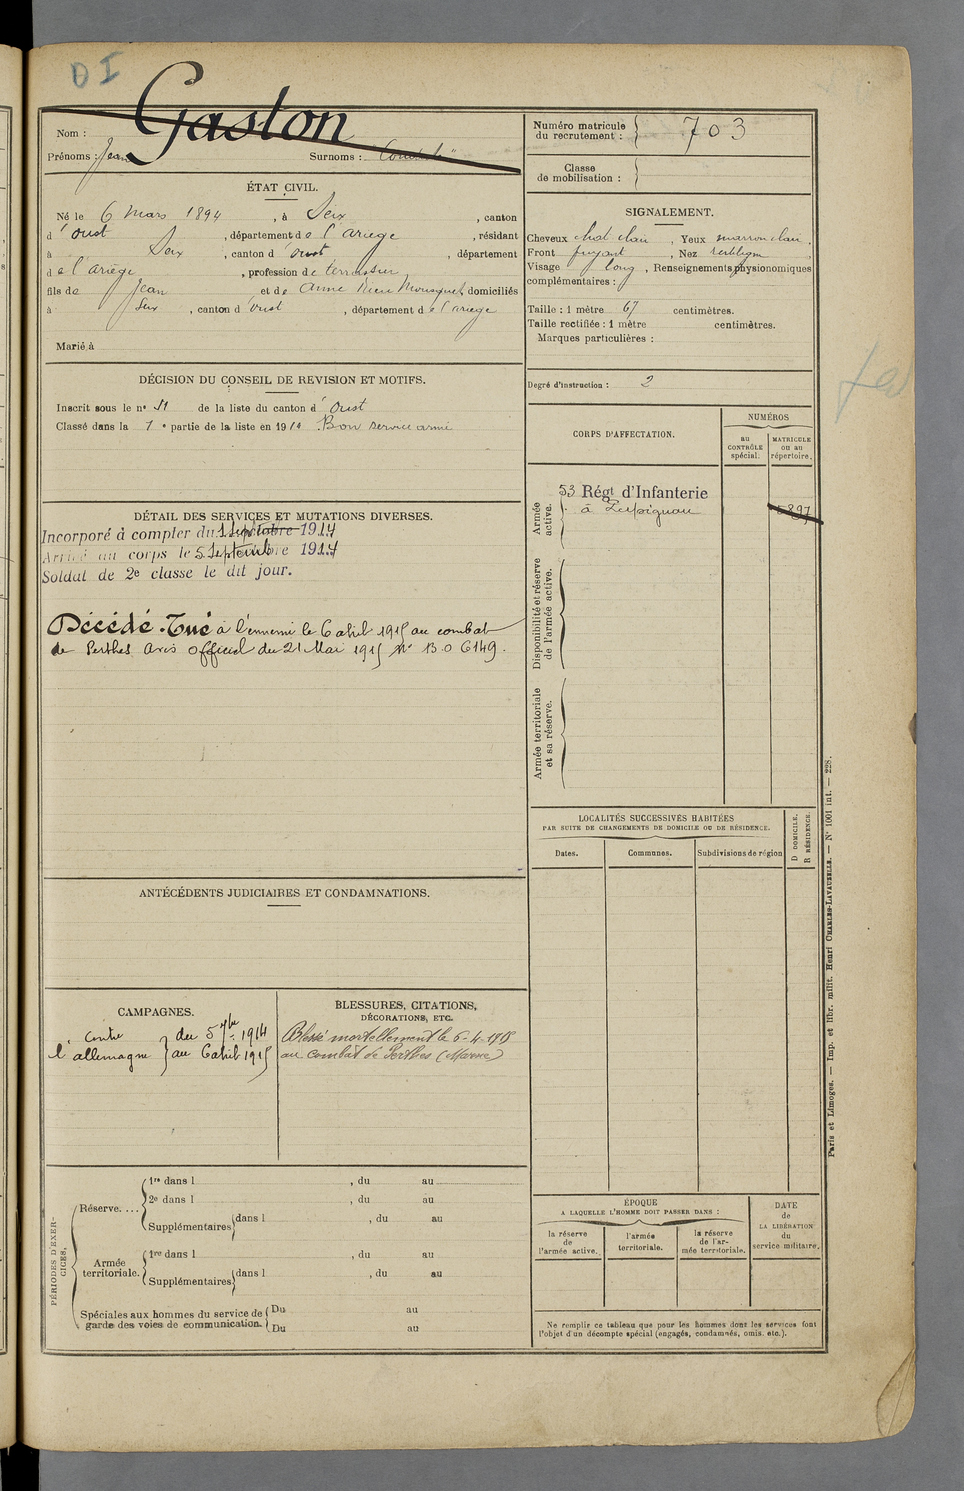 DI
Nom : Gaston
Prénoms : Jean Surnoms :
Numéro matricule du recrutement : 703
Classe de mobilisation :
ÉTAT CIVIL.
Né le 6 Mars 1894, à Seix, canton
d'Oust, département de l'Ariège, résidant
à Seix, canton d'Oust, département
de l'Ariège, profession de terrassier
fils de Jean et de Anne Mousquet, domiciliés
à Seix, canton d'Oust, département de l'Ariège
Marié à
SIGNALEMENT.
Cheveux chat clair, Yeux marron clair,
Front fuyant, Nez rectiligne
Visage long, Renseignements physionomiques
complémentaires :
Taille : 1 mètre 67 centimètres.
Taille rectifiée : 1 mètre centimètres.
Marques particulières :
Degré d'instruction : 2
DÉCISION DU CONSEIL DE REVISION ET MOTIFS.
Inscrit sous le nº 51 de la liste du canton d'Oust
Classé dans la 1e partie de la liste en 1914 Bon service armé
CORPS D'AFFECTATION.
NUMÉROS
au CONTRÔLE spécial.
MATRICULE ou au répertoire.
Armée active.
53 Régt d'Infanterie
à Perpignan
5897
Disponibilité et réserve de l'armée active.
Armée territoriale et sa réserve.
DÉTAIL DES SERVICES ET MUTATIONS DIVERSES.
Incorporé à compter du 1 Septembre 1914
Arrivé au corps le 5 Septembre 1914
Soldat de 2e classe le dit jour.
Décédé. Tué à l'ennemi le 6 avril 1915 au combat
de Perthes Avis officiel du 21 Mai 1915 Nº B.O 6149.
LOCALITÉS SUCCESSIVES HABITÉES
PAR SUITE DE CHANGEMENTS DE DOMICILE OU DE RÉSIDENCE.
Dates.
Communes.
Subdivisions de région
D DOMICILE.
R RÉSIDENCE.
ANTÉCÉDENTS JUDICIAIRES ET CONDAMNATIONS.
CAMPAGNES.
Contre l'allemagne
du 5 7bre 1914
au 6 avril 1915
BLESSURES, CITATIONS,
DÉCORATIONS, ETC.
Blessé mortellement le 6-4-1915
au combat de Perthes (Marne)
PÉRIODES D'EXERCICES.
Réserve....
1re dans l , du au
2e dans l , du au
Supplémentaires dans l , du au
Armée territoriale.
1re dans l , du au
Supplémentaires dans l , du au
Spéciales aux hommes du service de garde des voies de communication.
Du au
Du au
ÉPOQUE
A LAQUELLE L'HOMME DOIT PASSER DANS :
la réserve de l'armée active.
l'armée territoriale.
la réserve de l'armée territoriale.
DATE de LA LIBÉRATION du service militaire.
Ne remplir ce tableau que pour les hommes dont les services font
l'objet d'un décompte spécial (engagés, condamnés, omis, etc.).
Paris et Limoges. — Imp. et libr. milit. Henri CHARLES-LAVAUZELLE. — Nº 1001 int. — 228.